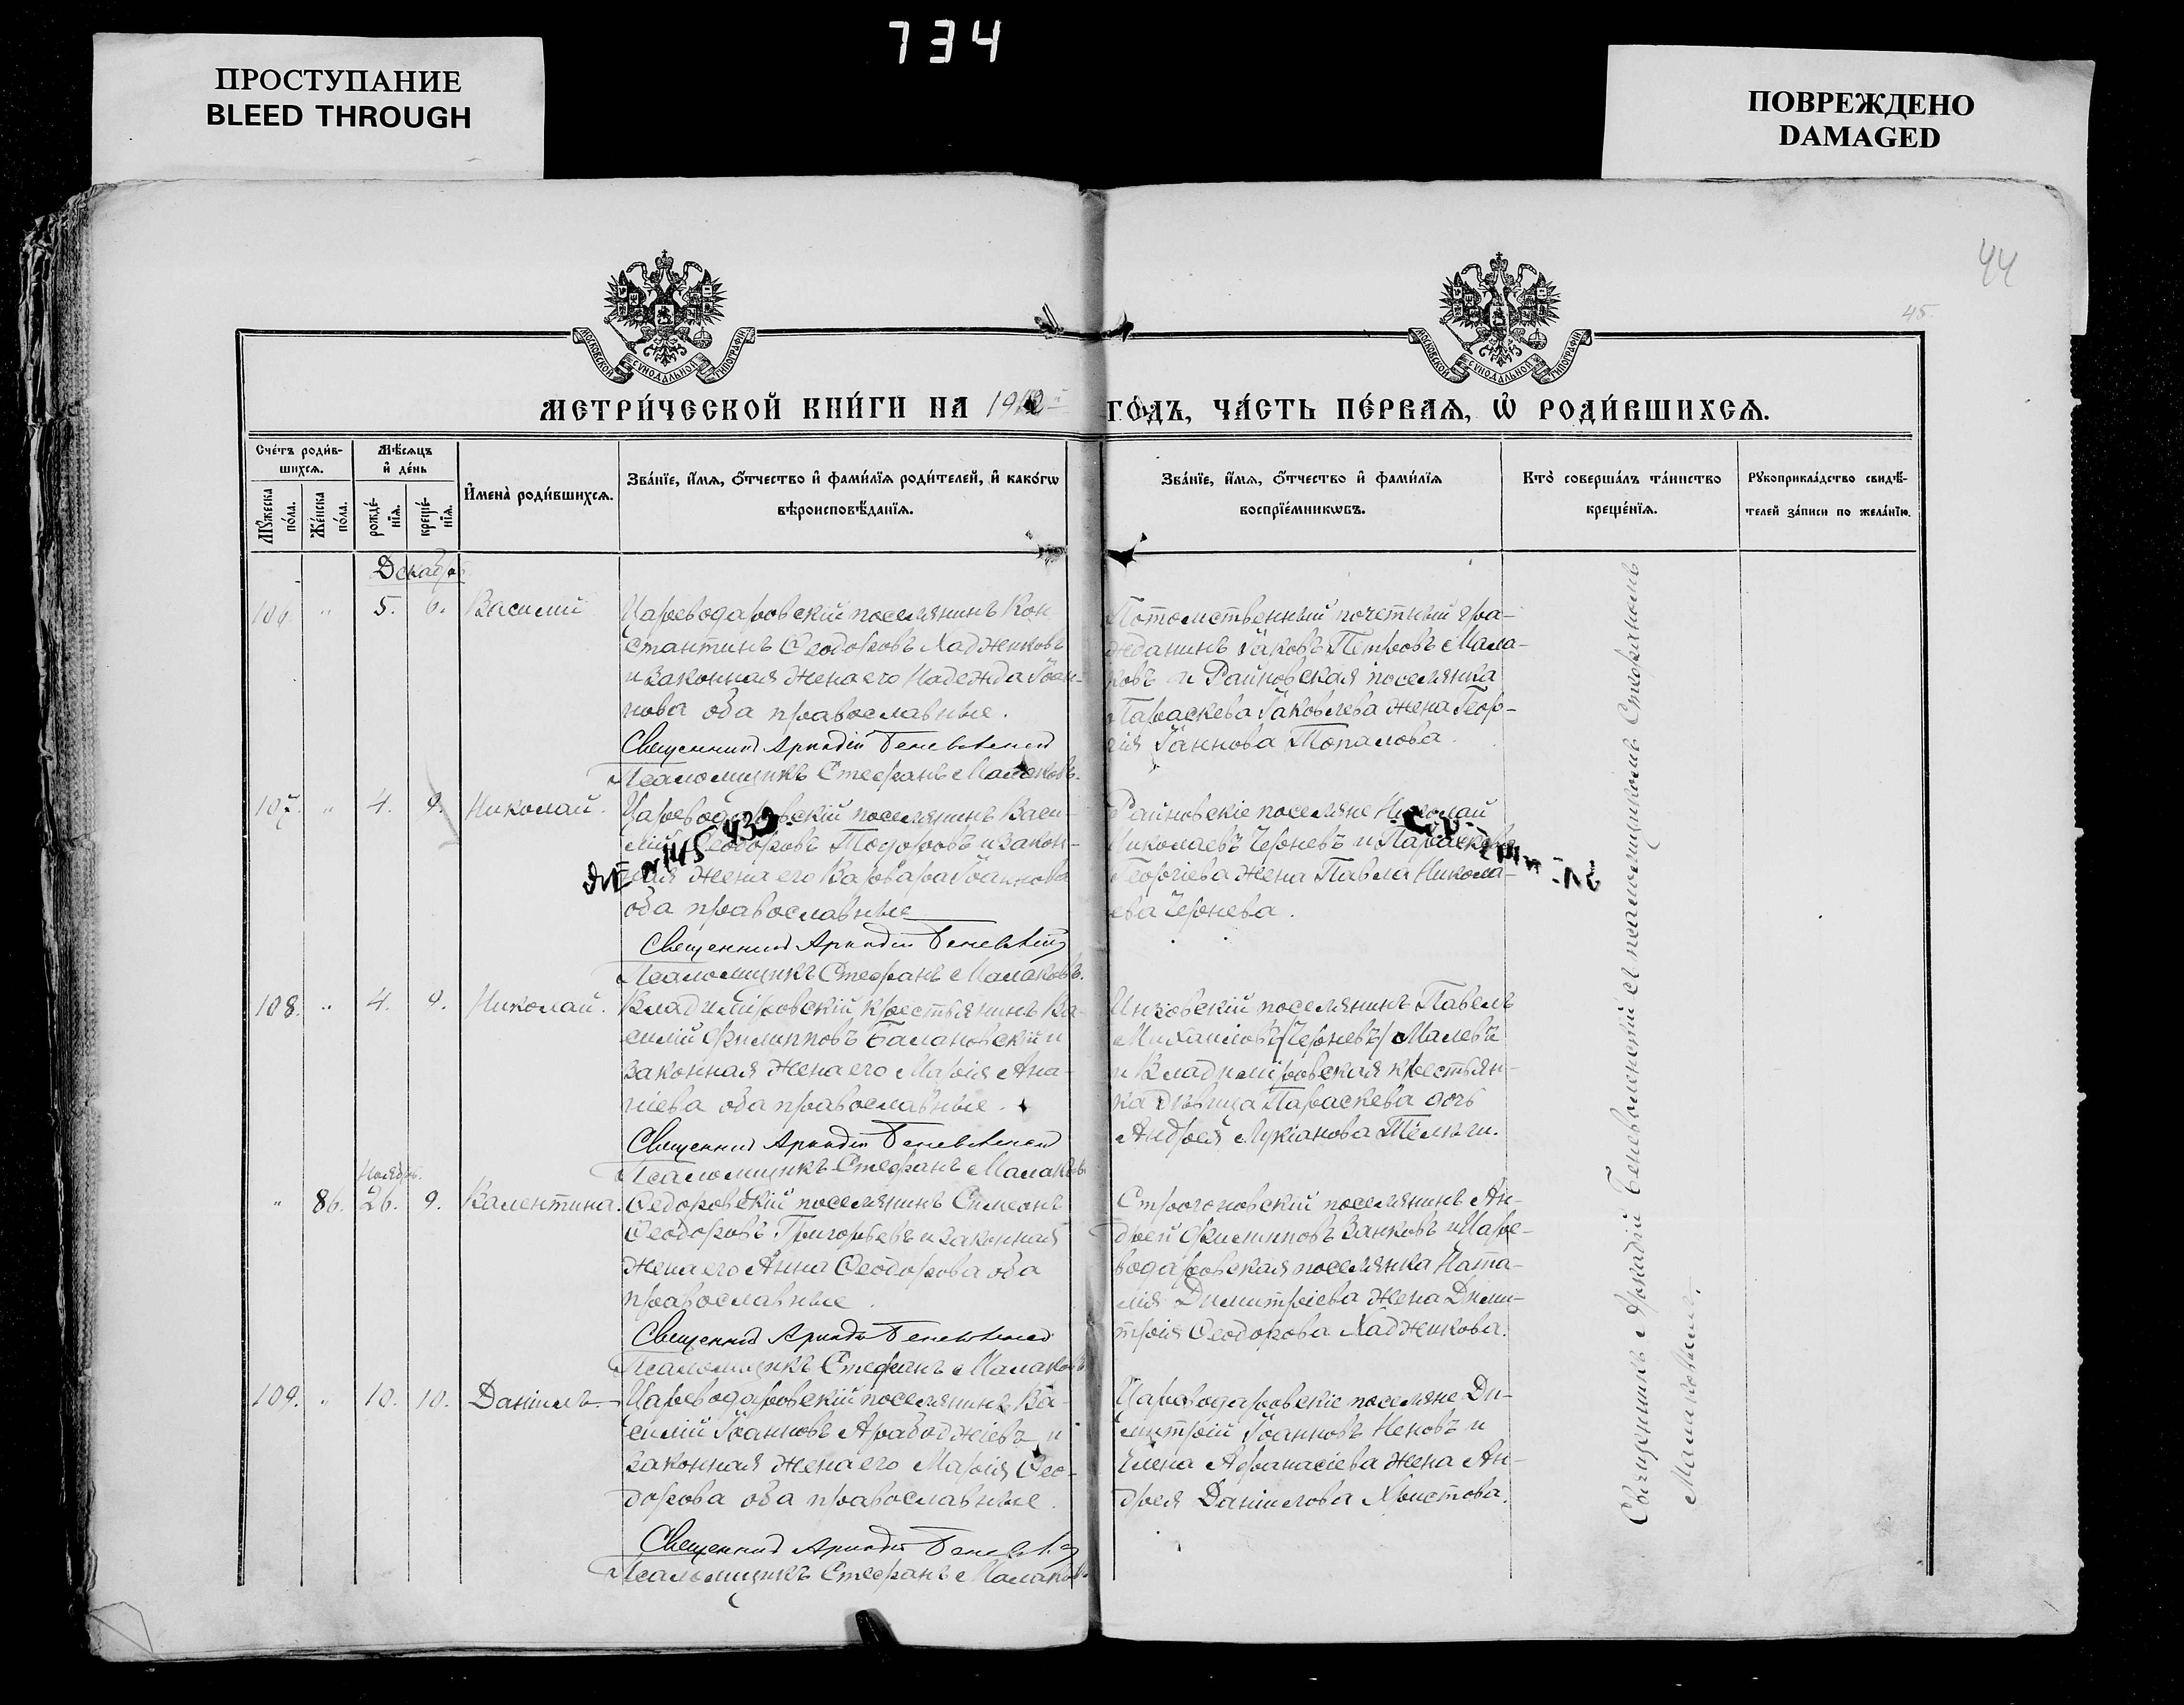 734
ПРОСТУПАНИЕ
BLEED THROUGH
ПОВРЕЖДЕНО
DAMAGED
44
45.
МОСКОВСКОЙ СУНОДАЛЬНОЙ ТИПОГРАФІИ
МОСКОВСКОЙ СУНОДАЛЬНОЙ ТИПОГРАФІИ
МЕТРИ́ЧЕСКОЙ КНИ́ГИ НА 1912 ГО́ДЪ, ЧА́СТЬ ПЕ́РВАѦ, Ѡ҆ РОДИ́ВШИХСѦ.
Сче́тъ роди́в-
шихсѧ.
Мѣ́сѧцъ
и҆ де́нь
Мꙋ́жеска
по́ла.
Же́нска
по́ла.
рожде́-
нїѧ.
креще́-
нїѧ.
И҆мена̀ роди́вшихсѧ.
Зва́нїе, и҆́мѧ, ѻ҆́тчество и҆ фами́лїѧ роди́телей, и҆ како́гѡ
вѣроисповѣ́данїѧ.
Зва́нїе, и҆́мѧ, ѻ҆́тчество и҆ фами́лїѧ
воспрїе́мникѡвъ.
Кто̀ соверша́лъ та́инство
креще́нїѧ.
Рꙋкоприкла́дство свидѣ́-
телей за́писи по жела́нїю.
Декабрь
106 " 5. 6. Василій
Цареводаровскій поселянинъ Кон
стантинъ Ѳеодоровъ Хаджиковъ
и законная жена его Надежда Іоан-
нова оба православные.
Священникъ Аркадій Беневоленскій
Псаломщикъ Стефанъ Малаковъ.
Потомственный почетный гра-
жданинъ Іаковъ Петровъ Мала-
ковъ и Райновская поселянка
Параскева Іаковлева жена Геор-
гія Іаннова Топалова.
107. " 4. 9. Николай.
Цареводаровскій поселянинъ Васи-
лій Ѳеодоровъ Тодоровъ и закон-
ная жена его Варвара Іоаннова
оба православные
Священникъ Аркадій Беневоленскій
Псаломщикъ Стефанъ Малаковъ.
Райновскіе поселяне Николай
Николаевъ Черневъ и Параскева
Георгіева жена Павла Никола-
ева Чернева.
108. " 4. 9. Николай.
Владиміровскій крестьянинъ Ва-
силій Филипповъ Балановскій и
законная жена его Марія Ана-
ніева оба православные.
Священникъ Аркадій Беневоленскій
Псаломщикъ Стефанъ Малаковъ
Инзовскій поселянинъ Павелъ
Михаиловъ /Черневъ/ Малевъ
и Владиміровская крестьян-
ка дѣвица Параскева дочь
Андрея Лукіанова
Ноябрь.
" 86. 26. 9. Валентина.
Ѳедоровскій поселянинъ Симеонъ
Ѳеодоровъ Григорьевъ и законная
жена его Анна Ѳеодорова оба
православные.
Священникъ Аркадій Беневоленскій
Псаломщикъ Стефанъ Малаковъ
Строгоновскій поселянинъ Ан-
дрей Филипповъ Занковъ и Царе-
водаровская поселянка Ната-
лія Димитріева жена Дими-
трія Ѳеодорова Хаджикова.
109. " 10. 10. Даніилъ.
Цареводаровскій поселянинъ Ва-
силій Іоанновъ Арабаджіевъ и
законная жена его Марія Ѳео-
дорова оба православные.
Священникъ Аркадій Беневоленскій
Псаломщикъ Стефанъ Малаковъ
Цареводаровскіе поселяне Ди-
митрій Іоанновъ Неновъ и
Елена Афанасіева жена Ан-
дрея Даніилова Христова.
Священникъ Аркадій Беневоленскій съ псаломщикомъ Стефаномъ
Малаковымъ.